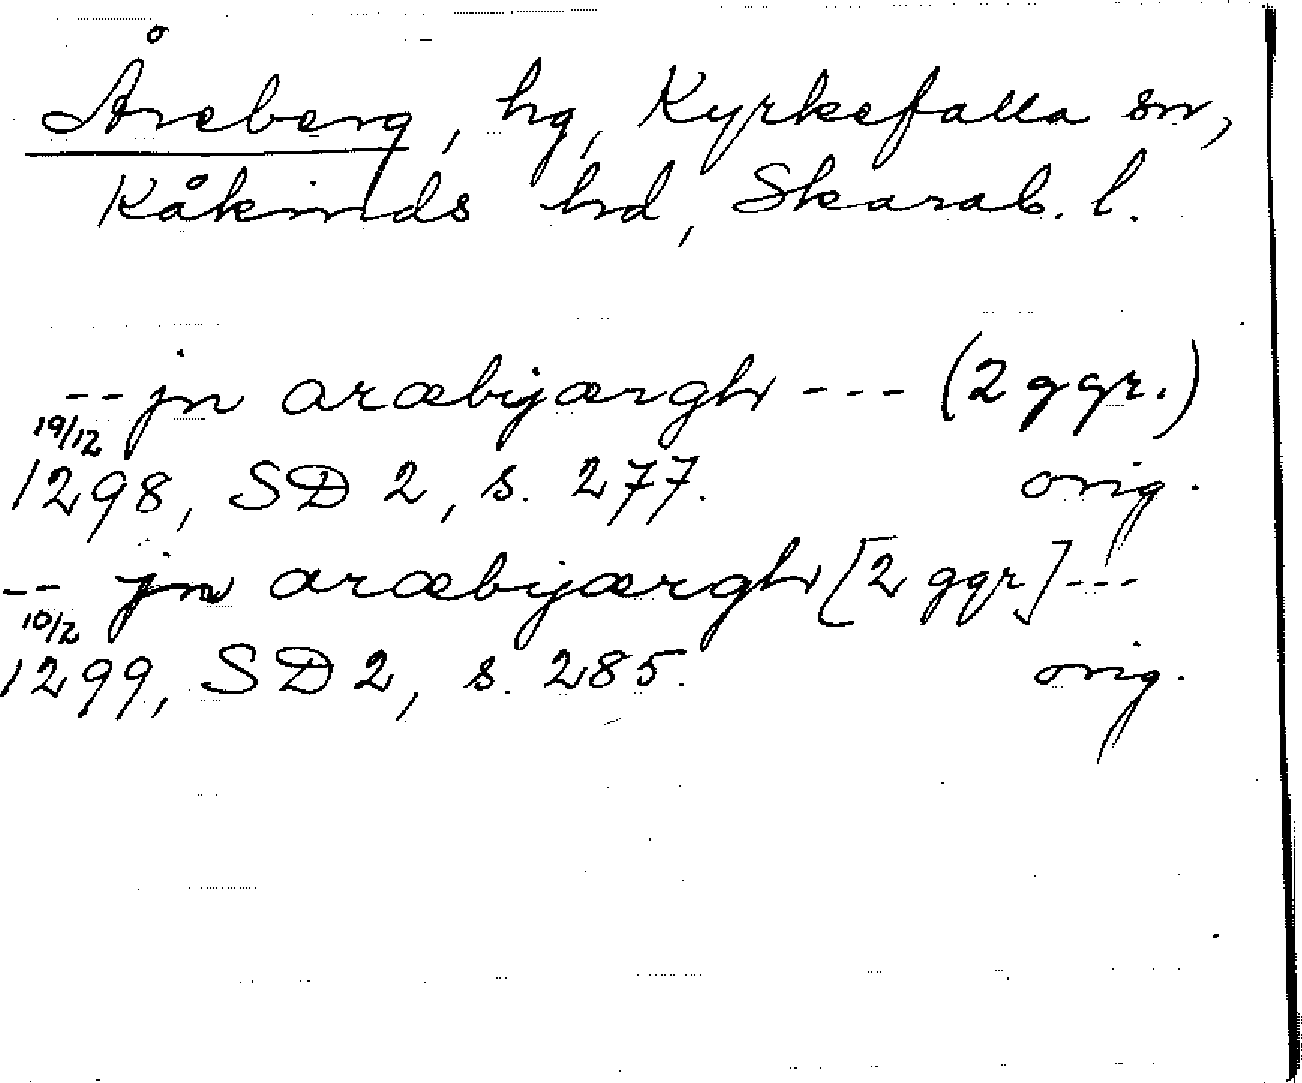 Åreberg, hg, Kyrkefalla sn,
Kåkinds hd, Skarab. l.
-- jn aræbijærgh --- (2 ggr.)
19/12
1298, SD 2, s. 277. orig.
-- jn aræbijærgh [2 ggr] ---
10/2
1299, SD 2, s. 285. orig.